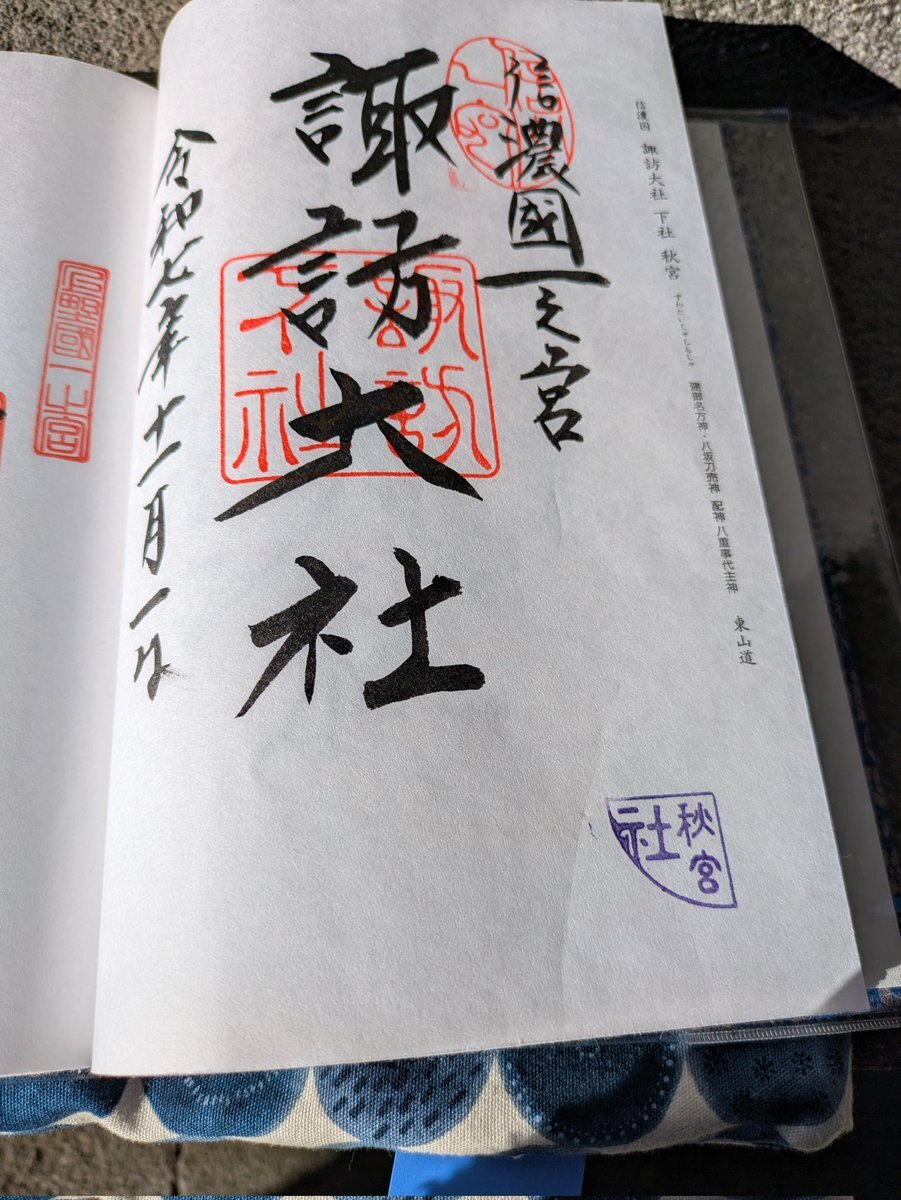 信濃国 諏訪大社 下社 秋宮 すわたいしゃしもしゃ 建御名方神・八坂刀売神 配神 八重事代主神 東山道
信濃國一之宮
諏訪大社
諏訪
大社
令和七年十一月一日
秋宮
社